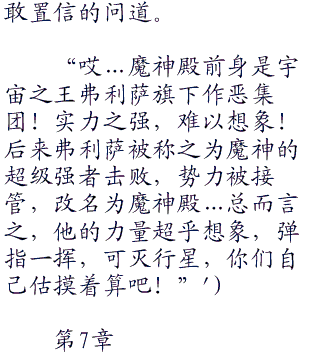 敢置信的问道。
“哎…魔神殿前身是宇
宙之王弗利萨旗下作恶集
团！实力之强，难以想象！
后来弗利萨被称之为魔神的
超级强者击败，势力被接
管，改名为魔神殿…总而言
之，他的力量超乎想象，弹
指一挥，可灭行星，你们自
己估摸着算吧！”')
第7章